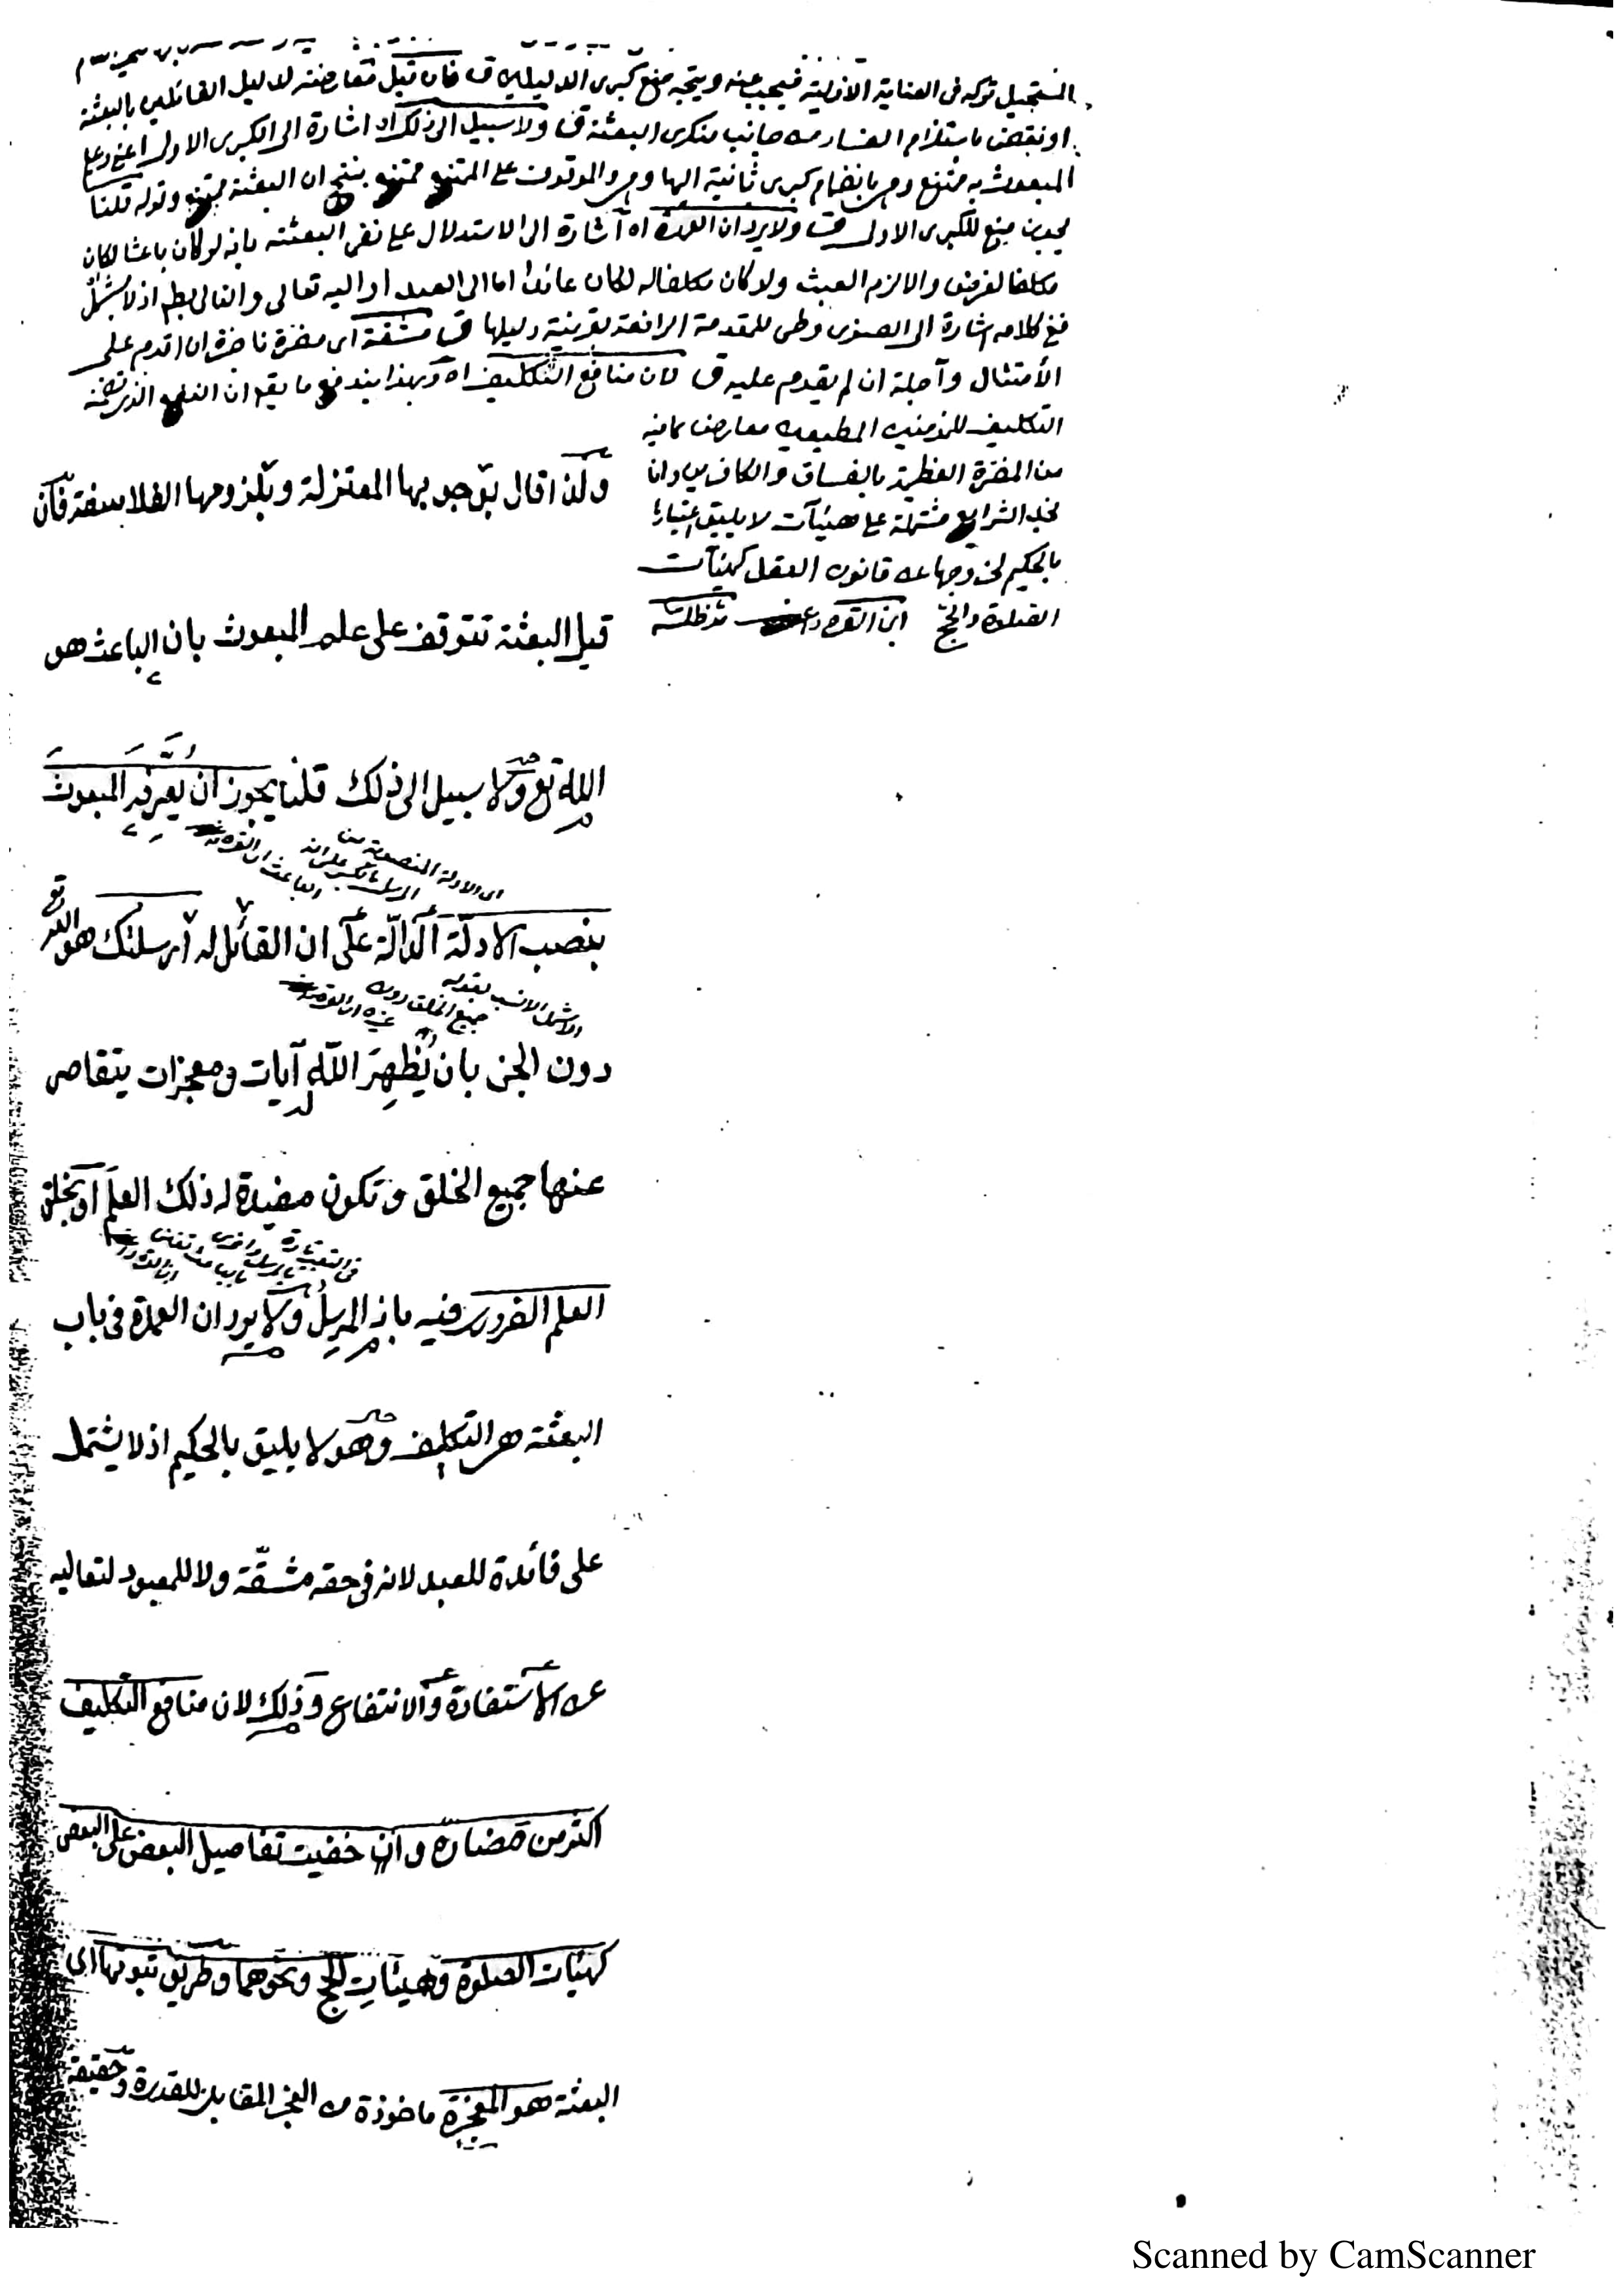 المستحيل تركه في العناية الازلية فيجب عنه ويتجه منع كبرى الدليلين ق فان قيل معارضة لدليل القائلين بالبعثة
او نقض باستلزام الفساد من جانب منكرى البعثة ق ولا سبيل الى ذلك اه اشارة الى الكبرى الاولى اعني وعلم
المبعوث به ممتنع وهي بانضمام كبرى ثانية اليها وهي والموقوف على الممتنع ممتنع ينتج ان البعثة ممتنع وقوله قلنا
يجوز منع للكبرى الاولى ق ولا يرد ان العمدة اه اشارة الى الاستدلال على نفى البعثة بانه لو كان باعثا لكان
مكلفا لغرض والا لزم العبث ولو كان مكلفا له لكان عائدا اما الى العبد او اليه تعالى والتالى بطم اذ لا يشتمل
ففي كلامه اشارة الى الصغرى وطى للمقدمة الرافعة بقرينة دليلها ق مشقة اى مضرة ناجزة ان اقدم على
الأمتثال وآجلة ان لم يقدم عليه ق لان منافع التكليف اه وبهذا يندفع ما يقم ان النفع الذى تضمنه
التكليف للمؤمنين المطيعين معارض بما فيه
من المضرة العظيمة بالفساق والكافرين وانا
نجد الشرايع مشتملة على هيئآت لا يليق اعتبارها
بالحكيم لخروجها عن قانون العقل كهيئآت
الصلوة والحج ابن القره داغي مد ظله
ولذا قال بوجوبها المعتزلة وبلزومها الفلاسفة فان
قيل البعثة تتوقف على علم المبعوث بان الباعث هو
الله تع ولا سبيل الى ذلك قلنا يجوز ان يعرف المبعوث
اى الادلة المنصوبة من
الباعث ابن القره
بنصب الادلة الدالة على ان القائل له أرسلتك هو الله تع
الاشمل الانسب بقوله
جميع الخلق دون
غيره ابن القره
دون الجن بان يظهر الله آيات ومعجزات يتقاصر
عنها جميع الخلق وتكون مفيدة له ذلك العلم او يخلق
العلم الضرورى فيه بانه المرسل ولا يرد ان العمدة فى باب
البعثة هى التكليف وهو لا يليق بالحكيم اذ لا يشتمل
على فائدة للعبد لانه فى حقه مشقّة ولا للمعبود لتعاليه
عن الاستفادة والانتفاع وذلك لان منافع التكليف
اكثر من مضاره وان خفيت تفاصيل البعض على البعض
كهيئات الصلوة وهيئات الحج ونحوهما وطريق ثبوتها اى
البعثة هو المعجزة ماخوذة من العجز المقابل للقدرة وحقيقة
Scanned by CamScanner